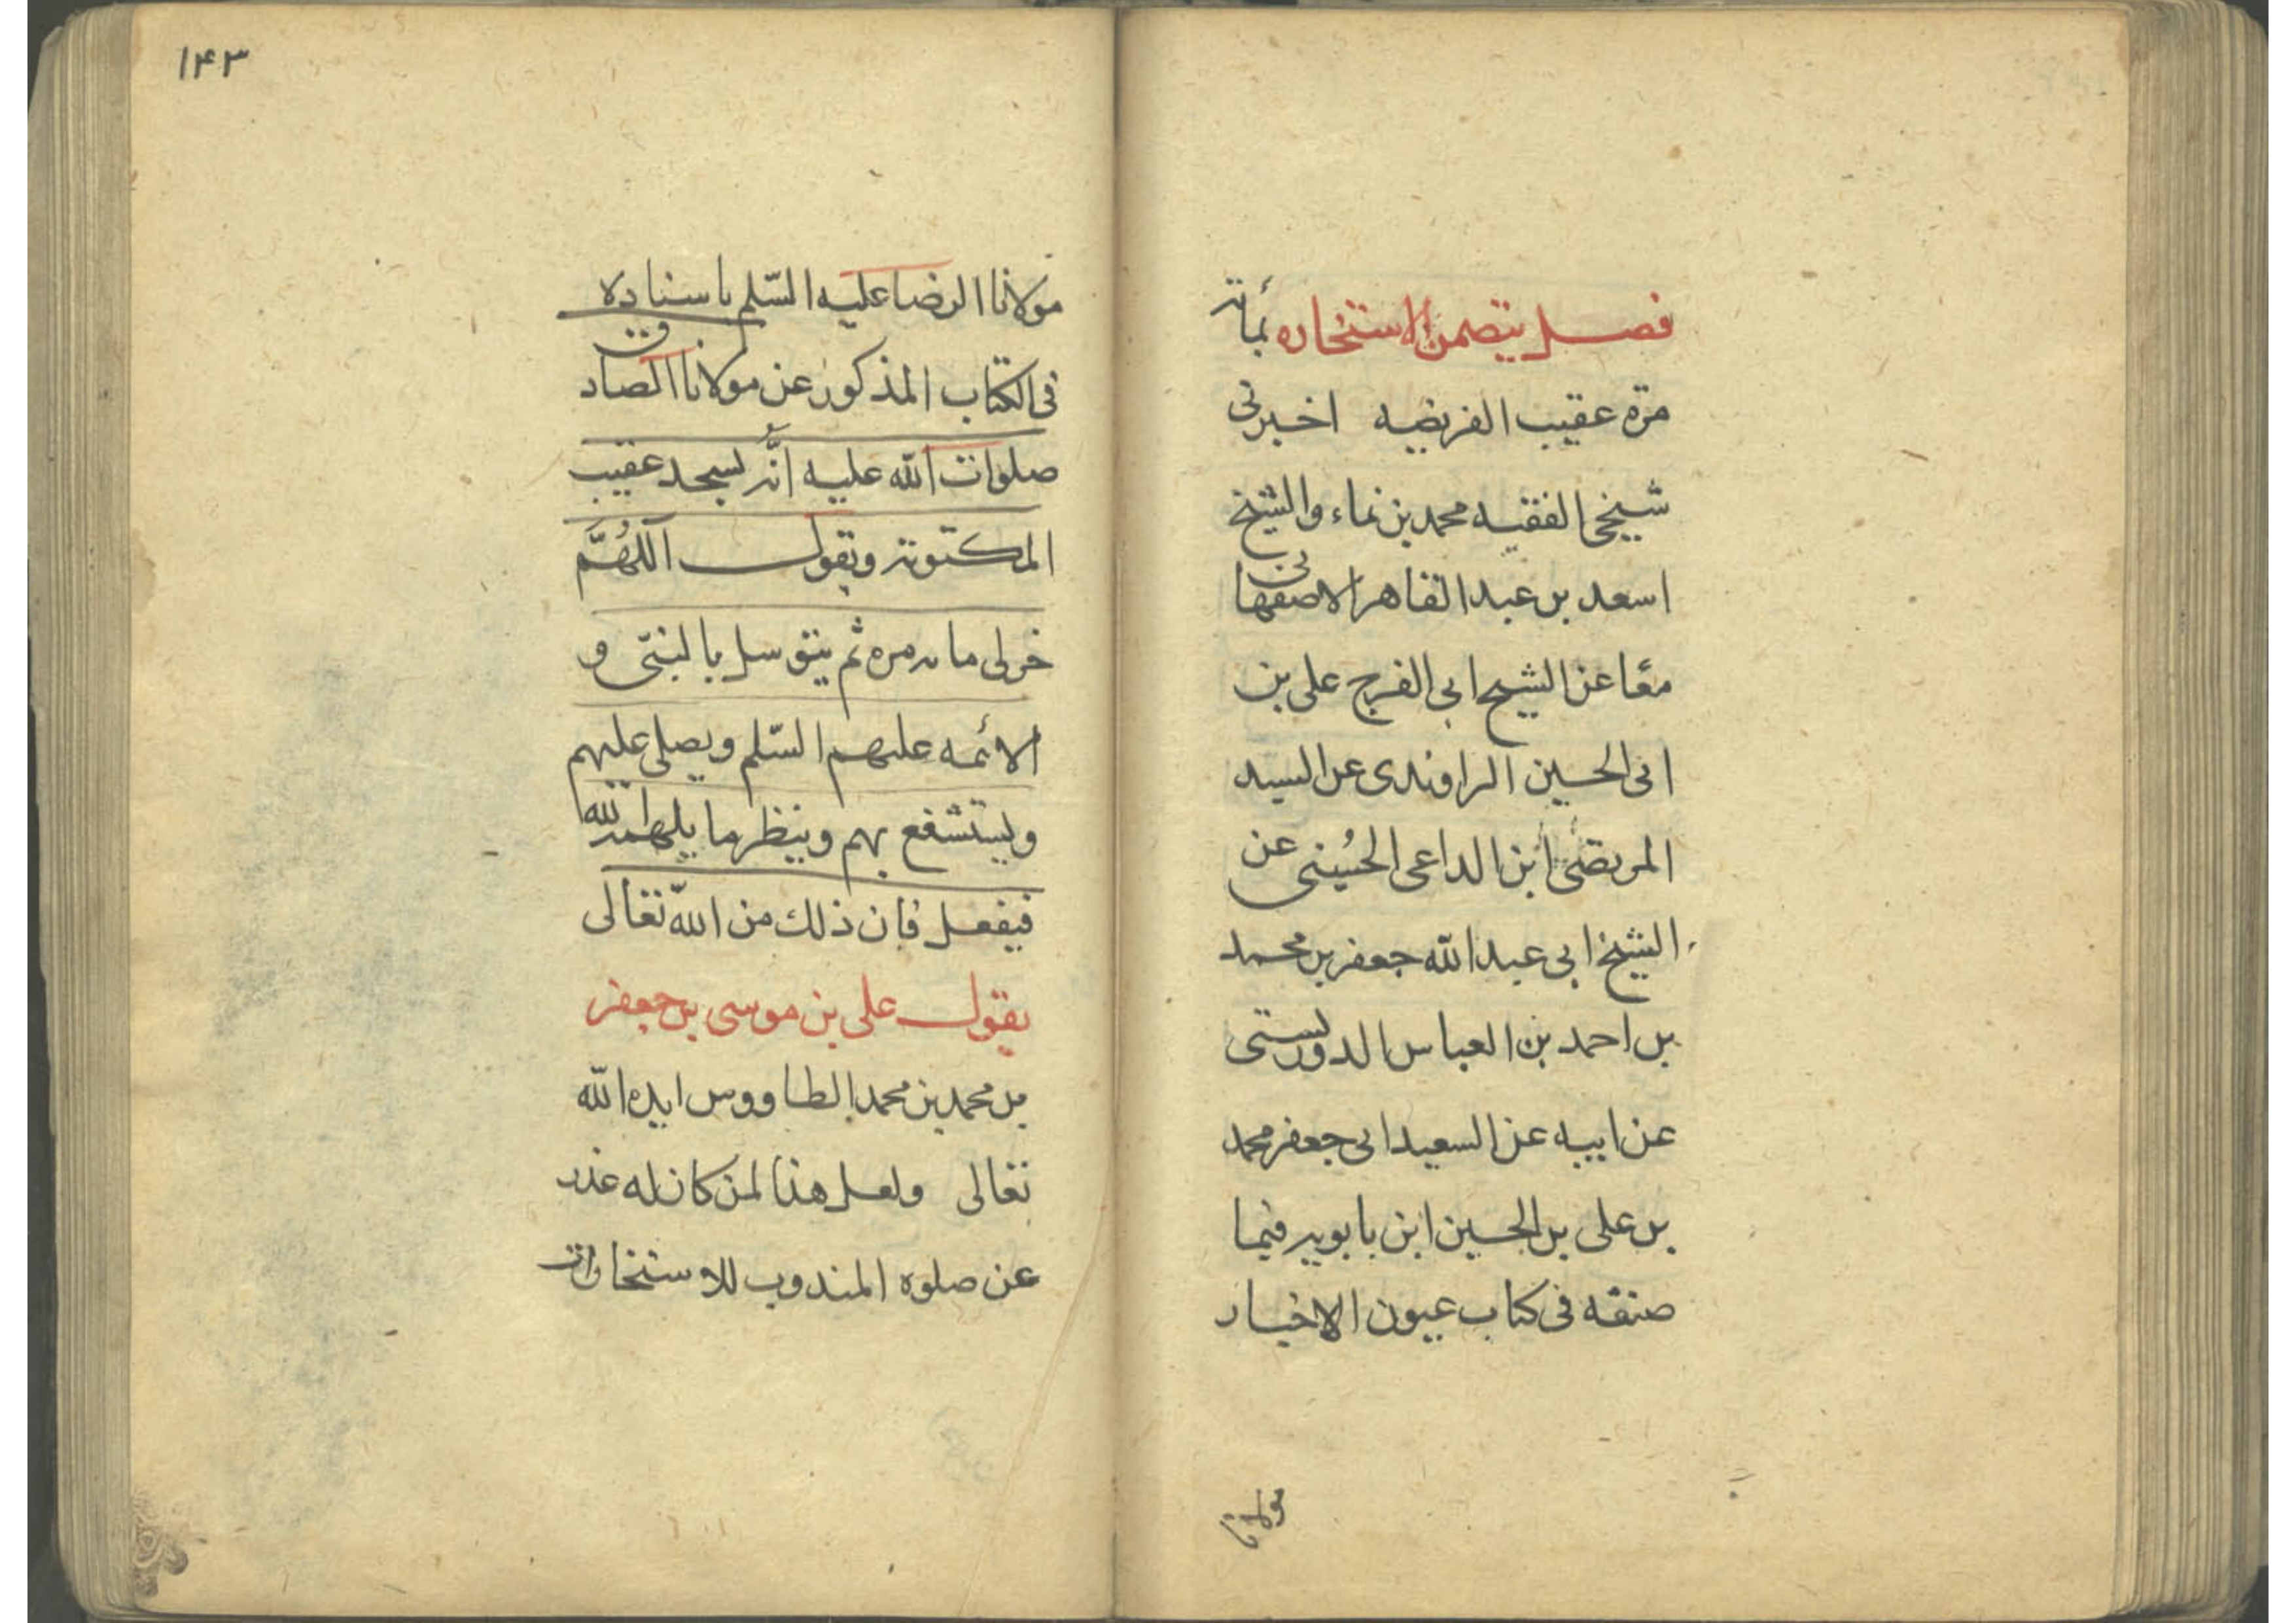 فصل يتضمن الاستخاره بمأته
مرّة عقيب الفريضه اخبرنى
شيخى الفقيه محمد بن نماء والشيخ
اسعد بن عبد القاهر الاصفهانى
معًا عن الشيخ ابى الفرج على بن
ابى الحسين الراوندى عن السيد
المرتضى ابن الداعى الحُسينى عن
الشيخ ابى عبد الله جعفر بن محمد
بن احمد بن العباس الدوريستى
عن ابيه عن السعيد ابى جعفر محمد
بن على بن الحسين ابن بابويه فيما
صنفه فى كتاب عيون الاخبار
مولانا
١۴٣
مولانا الرضا عليه السّلم باسناده
فى الكتاب المذكور عن مولانا الصادق
صلوات الله عليه انَّه يسجد عقيب
المكتوبة ويقول اللهُمَّ
خر لى مائه مره ثم يتوسل بالنبىّ و
الائمه عليهم السّلم ويصلى عليهم
ويستشفع بهم وينظر ما يلهمه الله
فيفعل فان ذلك من الله تعالى
يقول على بن موسى بن جعفر
بن محمد بن محمد الطاووس ايده الله
تعالى ولعل هذا لمن كان له عذر
عن صلوه المندوب للاستخارات